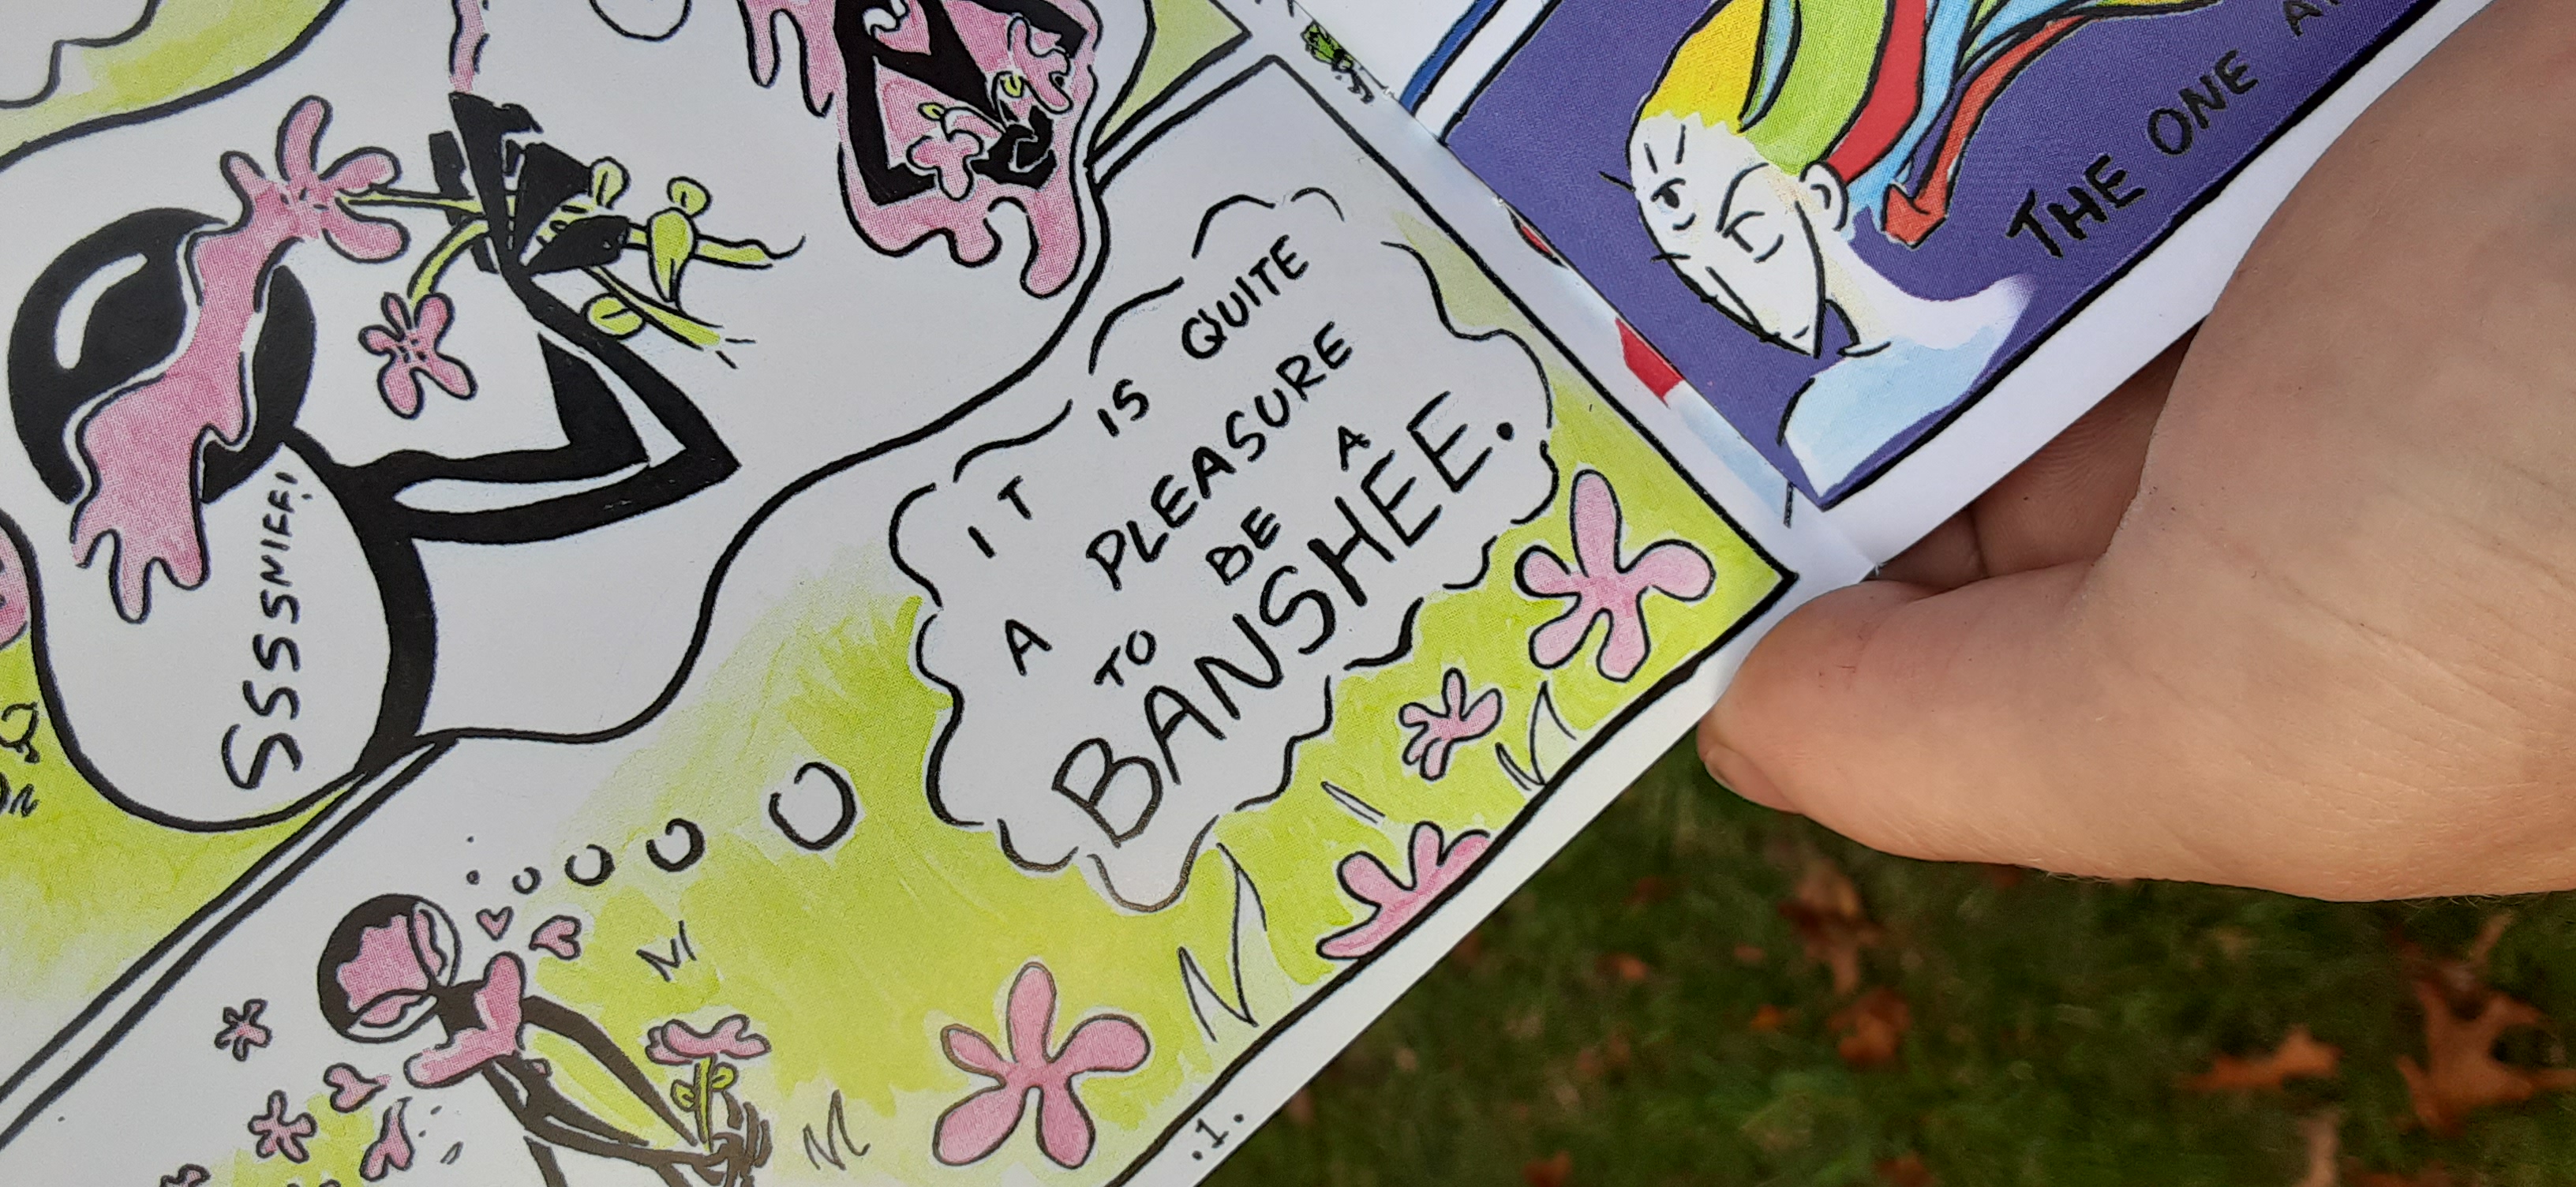 SSSSNIFF!
IT IS QUITE
A PLEASURE
TO BE A
BANSHEE.
.1.
THE ONE